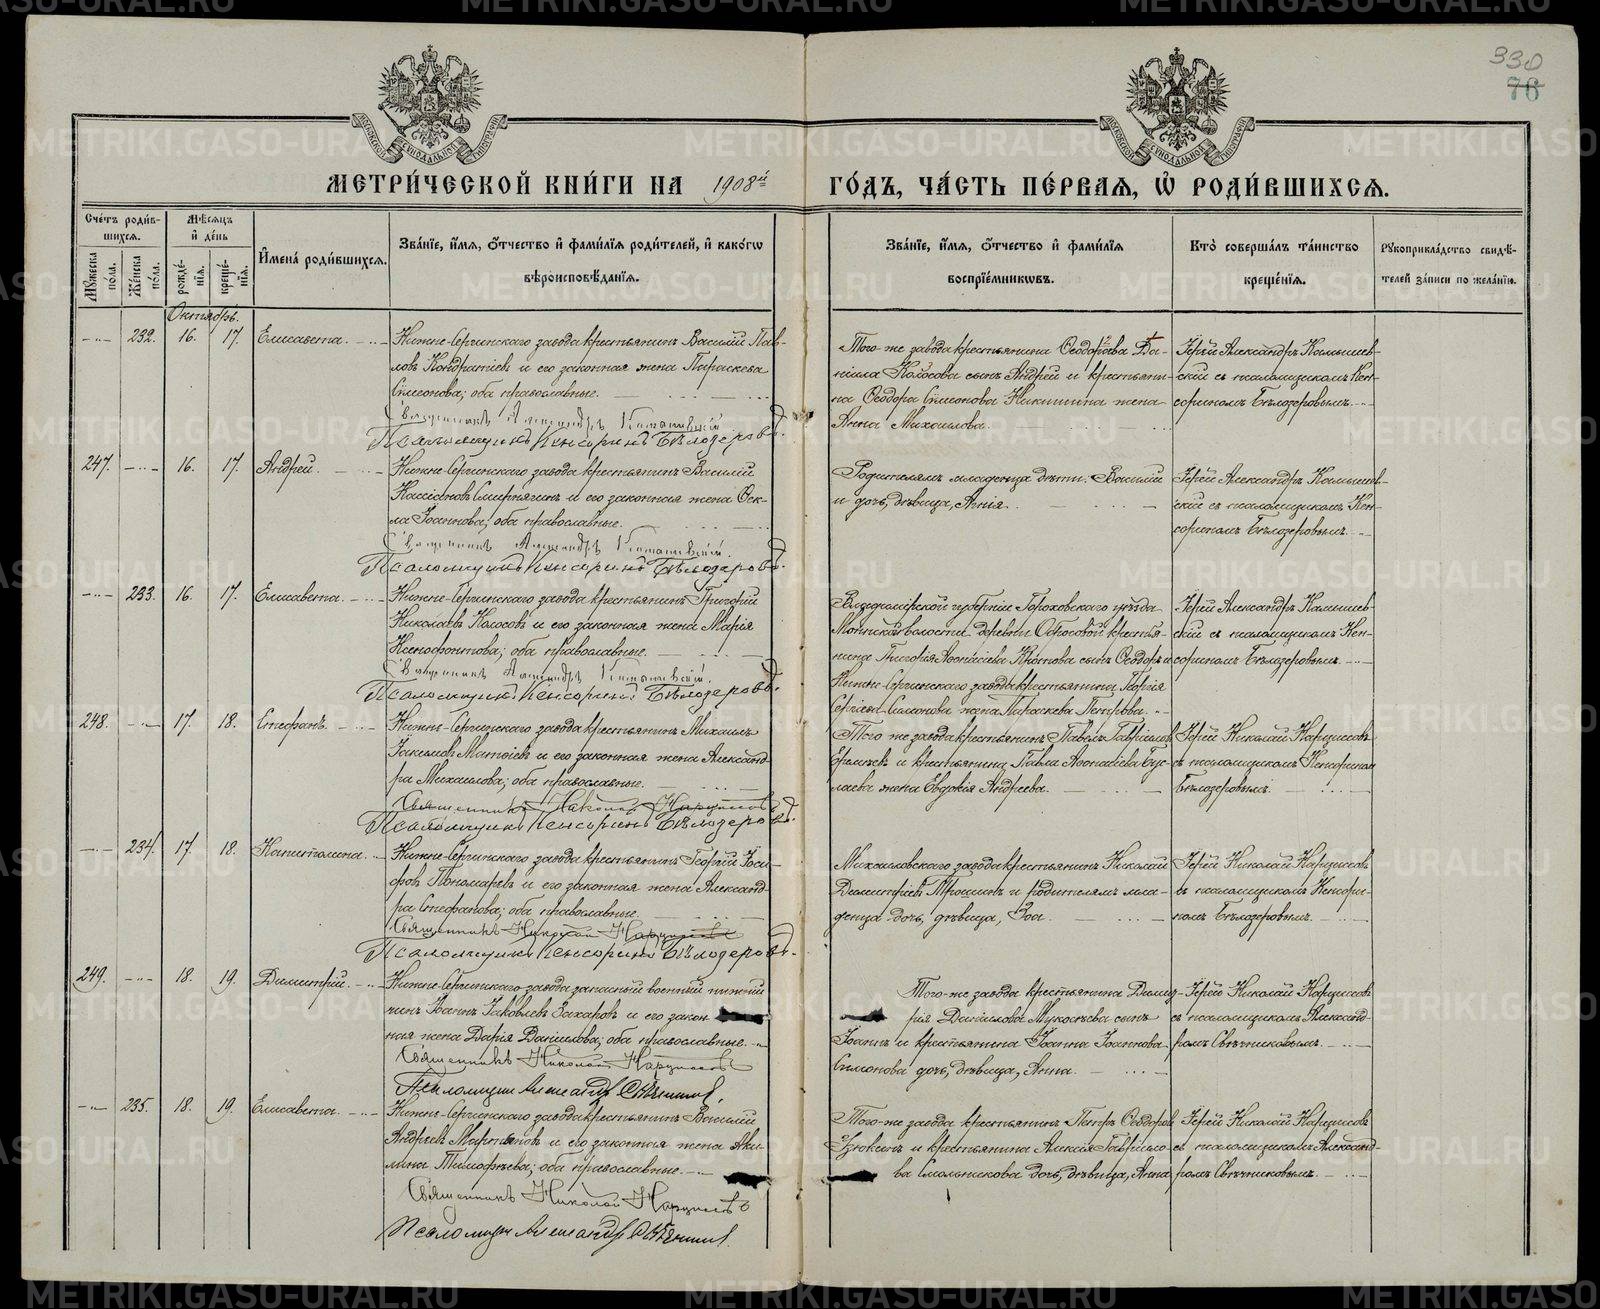 330
76
МОСКОВСКОЙ СѴНОДАЛЬНОЙ ТИПОГРАФІИ
МОСКОВСКОЙ СѴНОДАЛЬНОЙ ТИПОГРАФІИ
МЕТРИ́ЧЕСКОЙ КНИ́ГИ НА 1908й ГО́ДЪ, ЧА́СТЬ ПЕ́РВАЯ, Ѡ РОДИ́ВШИХСЯ.
Сче́тъ роди́в-шихся.
Мужеска по́ла.
Же́нска по́ла.
Мѣ́сяцъ и де́нь
рожде́-нія.
креще́-нія.
Имена́ роди́вшихся.
Зва́ніе, и́мя, о́тчество и фами́лія роди́телей, и како́гѡ
вѣроисповѣ́данія.
Зва́ніе, и́мя, о́тчество и фами́лія
воспріе́мниковъ.
Кто̀ соверша́лъ та́инство
креще́нія.
Рукоприкла́дство свидѣ́-
телей за́писи по жела́нію.
Октябрь.
232. 16. 17. Елисавета.
Нижне-Сергинскаго завода крестьянинъ Василій Пав-
ловъ Кондратіевъ и его законная жена Параскева
Симеонова; оба православные.
Священникъ Александръ Камышевскій
Псаломщикъ Кенсоринъ Бѣлозеровъ.
Того-же завода крестьянина Ѳеодорова Да-
ніила Колосова сынъ Андрей и крестьяни-
на Ѳеодора Симеонова Никишина жена
Анна Михаилова.
Іерей Александръ Камышев-
скій съ псаломщикомъ Кен-
сориномъ Бѣлозеровымъ.
247. 16. 17. Андрей.
Нижне-Сергинскаго завода крестьянинъ Василій
Кассіановъ Смирнягинъ и его законная жена Ѳек-
ла Іоаннова; оба православные.
Священникъ Александръ Камышевскій.
Псаломщикъ Кенсоринъ Бѣлозеровъ.
Родителямъ младенца дѣти: Василій
и дочь, дѣвица, Аннія.
Іерей Александръ Камышев-
скій съ псаломщикомъ Кен-
сориномъ Бѣлозеровымъ.
233. 16. 17. Елисавета.
Нижне-Сергинскаго завода крестьянинъ Григорій
Николаевъ Колосовъ и его законная жена Марія
Ксенофонтова; оба православные.
Священникъ Александръ Камышевскій.
Псаломщикъ Кенсоринъ Бѣлозеровъ.
Владимірской губерніи Гороховскаго уѣзда
волости деревни крестья-
нина Григорія Аѳанасіева сынъ Ѳеодоръ и
Нижне-Сергинскаго завода крестьянина Георгія
Сергіева Симонова жена Параскева Петрова.
Іерей Александръ Камышев-
скій съ псаломщикомъ Кен-
сориномъ Бѣлозеровымъ.
248. 17. 18. Стефанъ.
Нижне-Сергинскаго завода крестьянинъ Михаилъ
Іакимовъ Матѳіевъ и его законная жена Александ-
ра Михаилова; оба православные.
Священникъ Николай Нарциссовъ
Псаломщикъ Кенсоринъ Бѣлозеровъ.
Того же завода крестьянинъ Павелъ Гавріиловъ
и крестьянина Павла Аѳанасіева Бус-
лаева жена Евдокія Андреева.
Іерей Николай Нарциссовъ
съ псаломщикомъ Кенсориномъ
Бѣлозеровымъ.
234. 17. 18. Капитолина.
Нижне-Сергинскаго завода крестьянинъ Георгій Іоси-
фовъ Пономаревъ и его законная жена Александ-
ра Стефанова; оба православные.
Священникъ Николай Нарциссовъ
Псаломщикъ Кенсоринъ Бѣлозеровъ.
Михайловскаго завода крестьянинъ Николай
Димитріевъ Трошинъ и родителямъ мла-
денца дочь, дѣвица, Зоя.
Іерей Николай Нарциссовъ
съ псаломщикомъ Кенсори-
номъ Бѣлозеровымъ.
249. 18. 19. Димитрій.
Нижне-Сергинскаго завода запасный военный нижній
чинъ Іоаннъ Іаковлевъ Захаровъ и его закон-
ная жена Дарія Даніилова; оба православные.
Священникъ Николай Нарциссовъ
Псаломщикъ Александръ Свѣчниковъ.
Того-же завода крестьянина Димит-
рія Даніилова Мукосѣева сынъ
Іоаннъ и крестьянина Іоанна Іоаннова
Симонова дочь, дѣвица, Анна.
Іерей Николай Нарциссовъ
съ псаломщикомъ Александ-
ромъ Свѣчниковымъ.
235. 18. 19. Елисавета.
Нижне-Сергинскаго завода крестьянинъ Василій
Андреевъ Мартьяновъ и его законная жена Аки-
лина Тимоѳеева; оба православные.
Священникъ Николай Нарциссовъ
Псаломщикъ Александръ Свѣчниковъ.
Того-же завода крестьянинъ Петръ Ѳеодоровъ
и крестьянина Алексія Гавріило-
ва Смольникова дочь, дѣвица, Анна
Іерей Николай Нарциссовъ
съ псаломщикомъ Александ-
ромъ Свѣчниковымъ.
METRIKI.GASO-URAL.RU